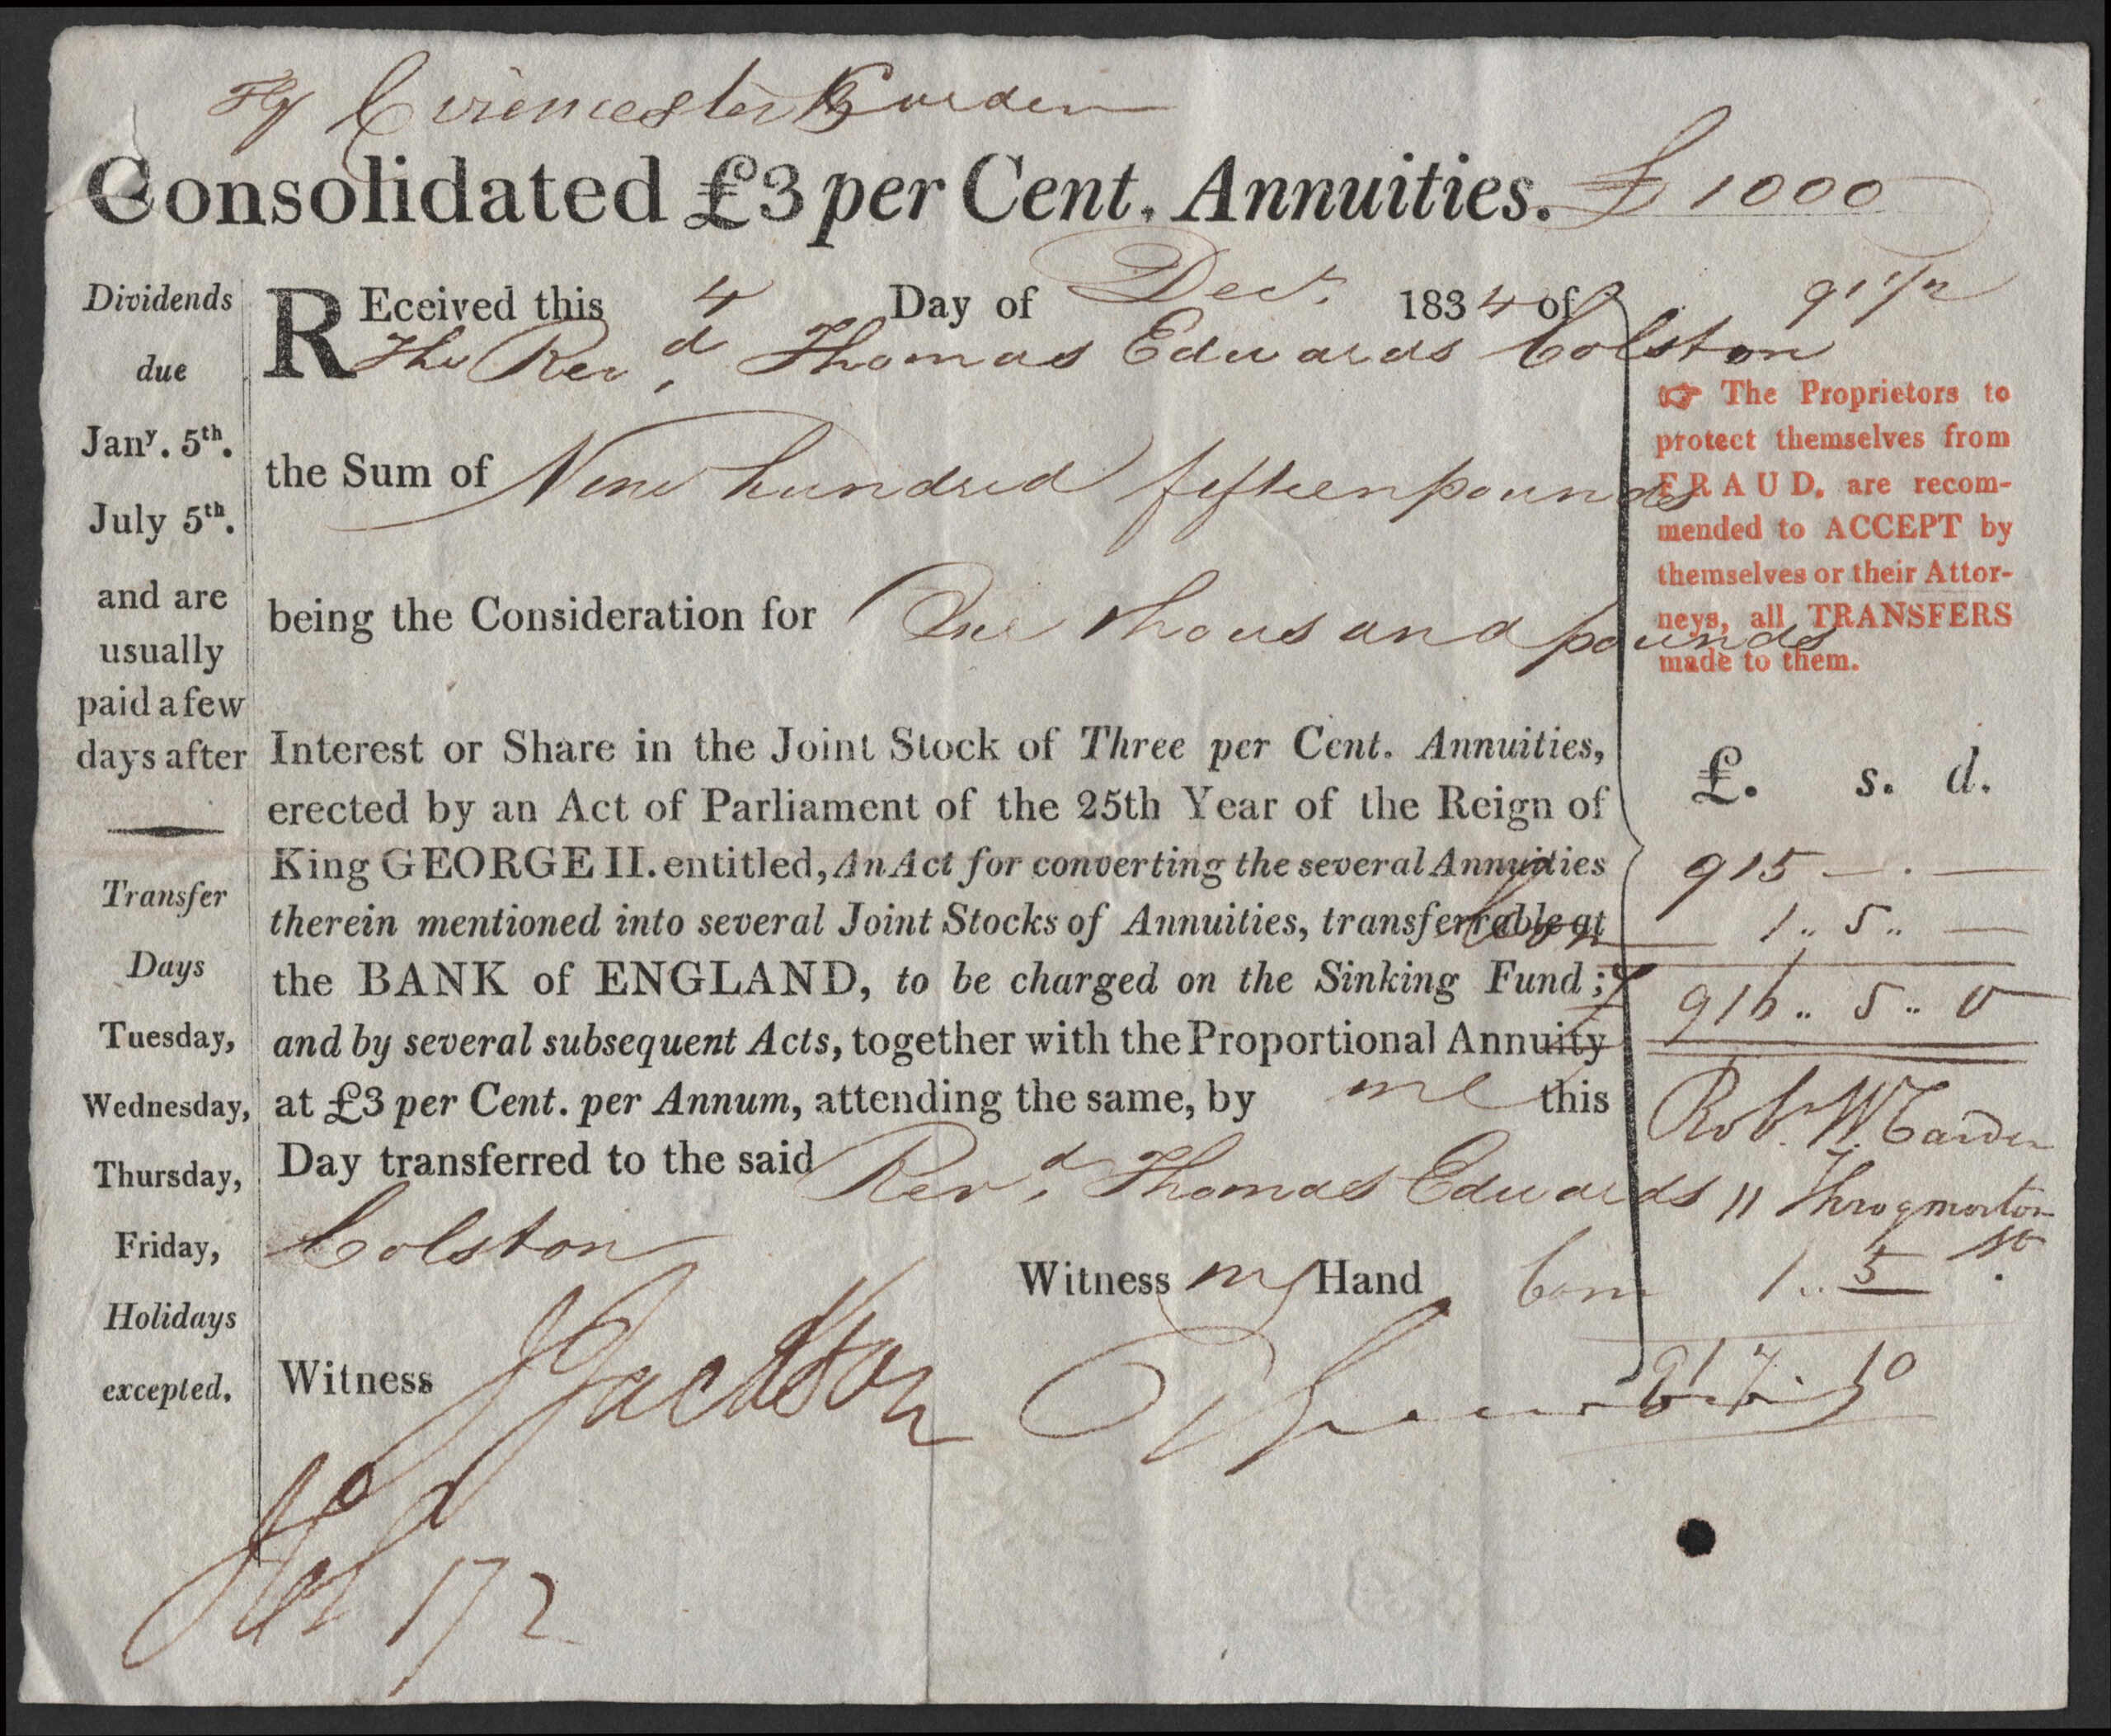 Cirencester
Consolidated £3 per Cent. Annuities. £ 1000
Dividends
due
Janʸ. 5ᵗʰ.
July 5ᵗʰ.
and are
usually
paid a few
days after
Transfer
Days
Tuesday,
Wednesday,
Thursday,
Friday,
Holidays
excepted.
REceived this 4 Day of Decr. 1834 of
The Revd. Thomas Edwards Colston
the Sum of Nine hundred fifteen pounds
being the Consideration for One thousand pounds
Interest or Share in the Joint Stock of Three per Cent. Annuities,
erected by an Act of Parliament of the 25th Year of the Reign of
King GEORGE II. entitled, An Act for converting the several Annuities
therein mentioned into several Joint Stocks of Annuities, transferrable at
the BANK of ENGLAND, to be charged on the Sinking Fund;
and by several subsequent Acts, together with the Proportional Annuity
at £3 per Cent. per Annum, attending the same, by me this
Day transferred to the said Revd. Thomas Edwards
Colston
Witness my Hand
Witness J Jackson
172
91 1/2
☞ The Proprietors to
protect themselves from
FRAUD, are recom-
mended to ACCEPT by
themselves or their Attor-
neys, all TRANSFERS
made to them.
£. s. d.
915 — . —
Com 1 .. 5 .. —
916 .. 5 .. 0
Robt. W. Carden
11 Throgmorton
St.
Com 1 .. 5
917 . 10